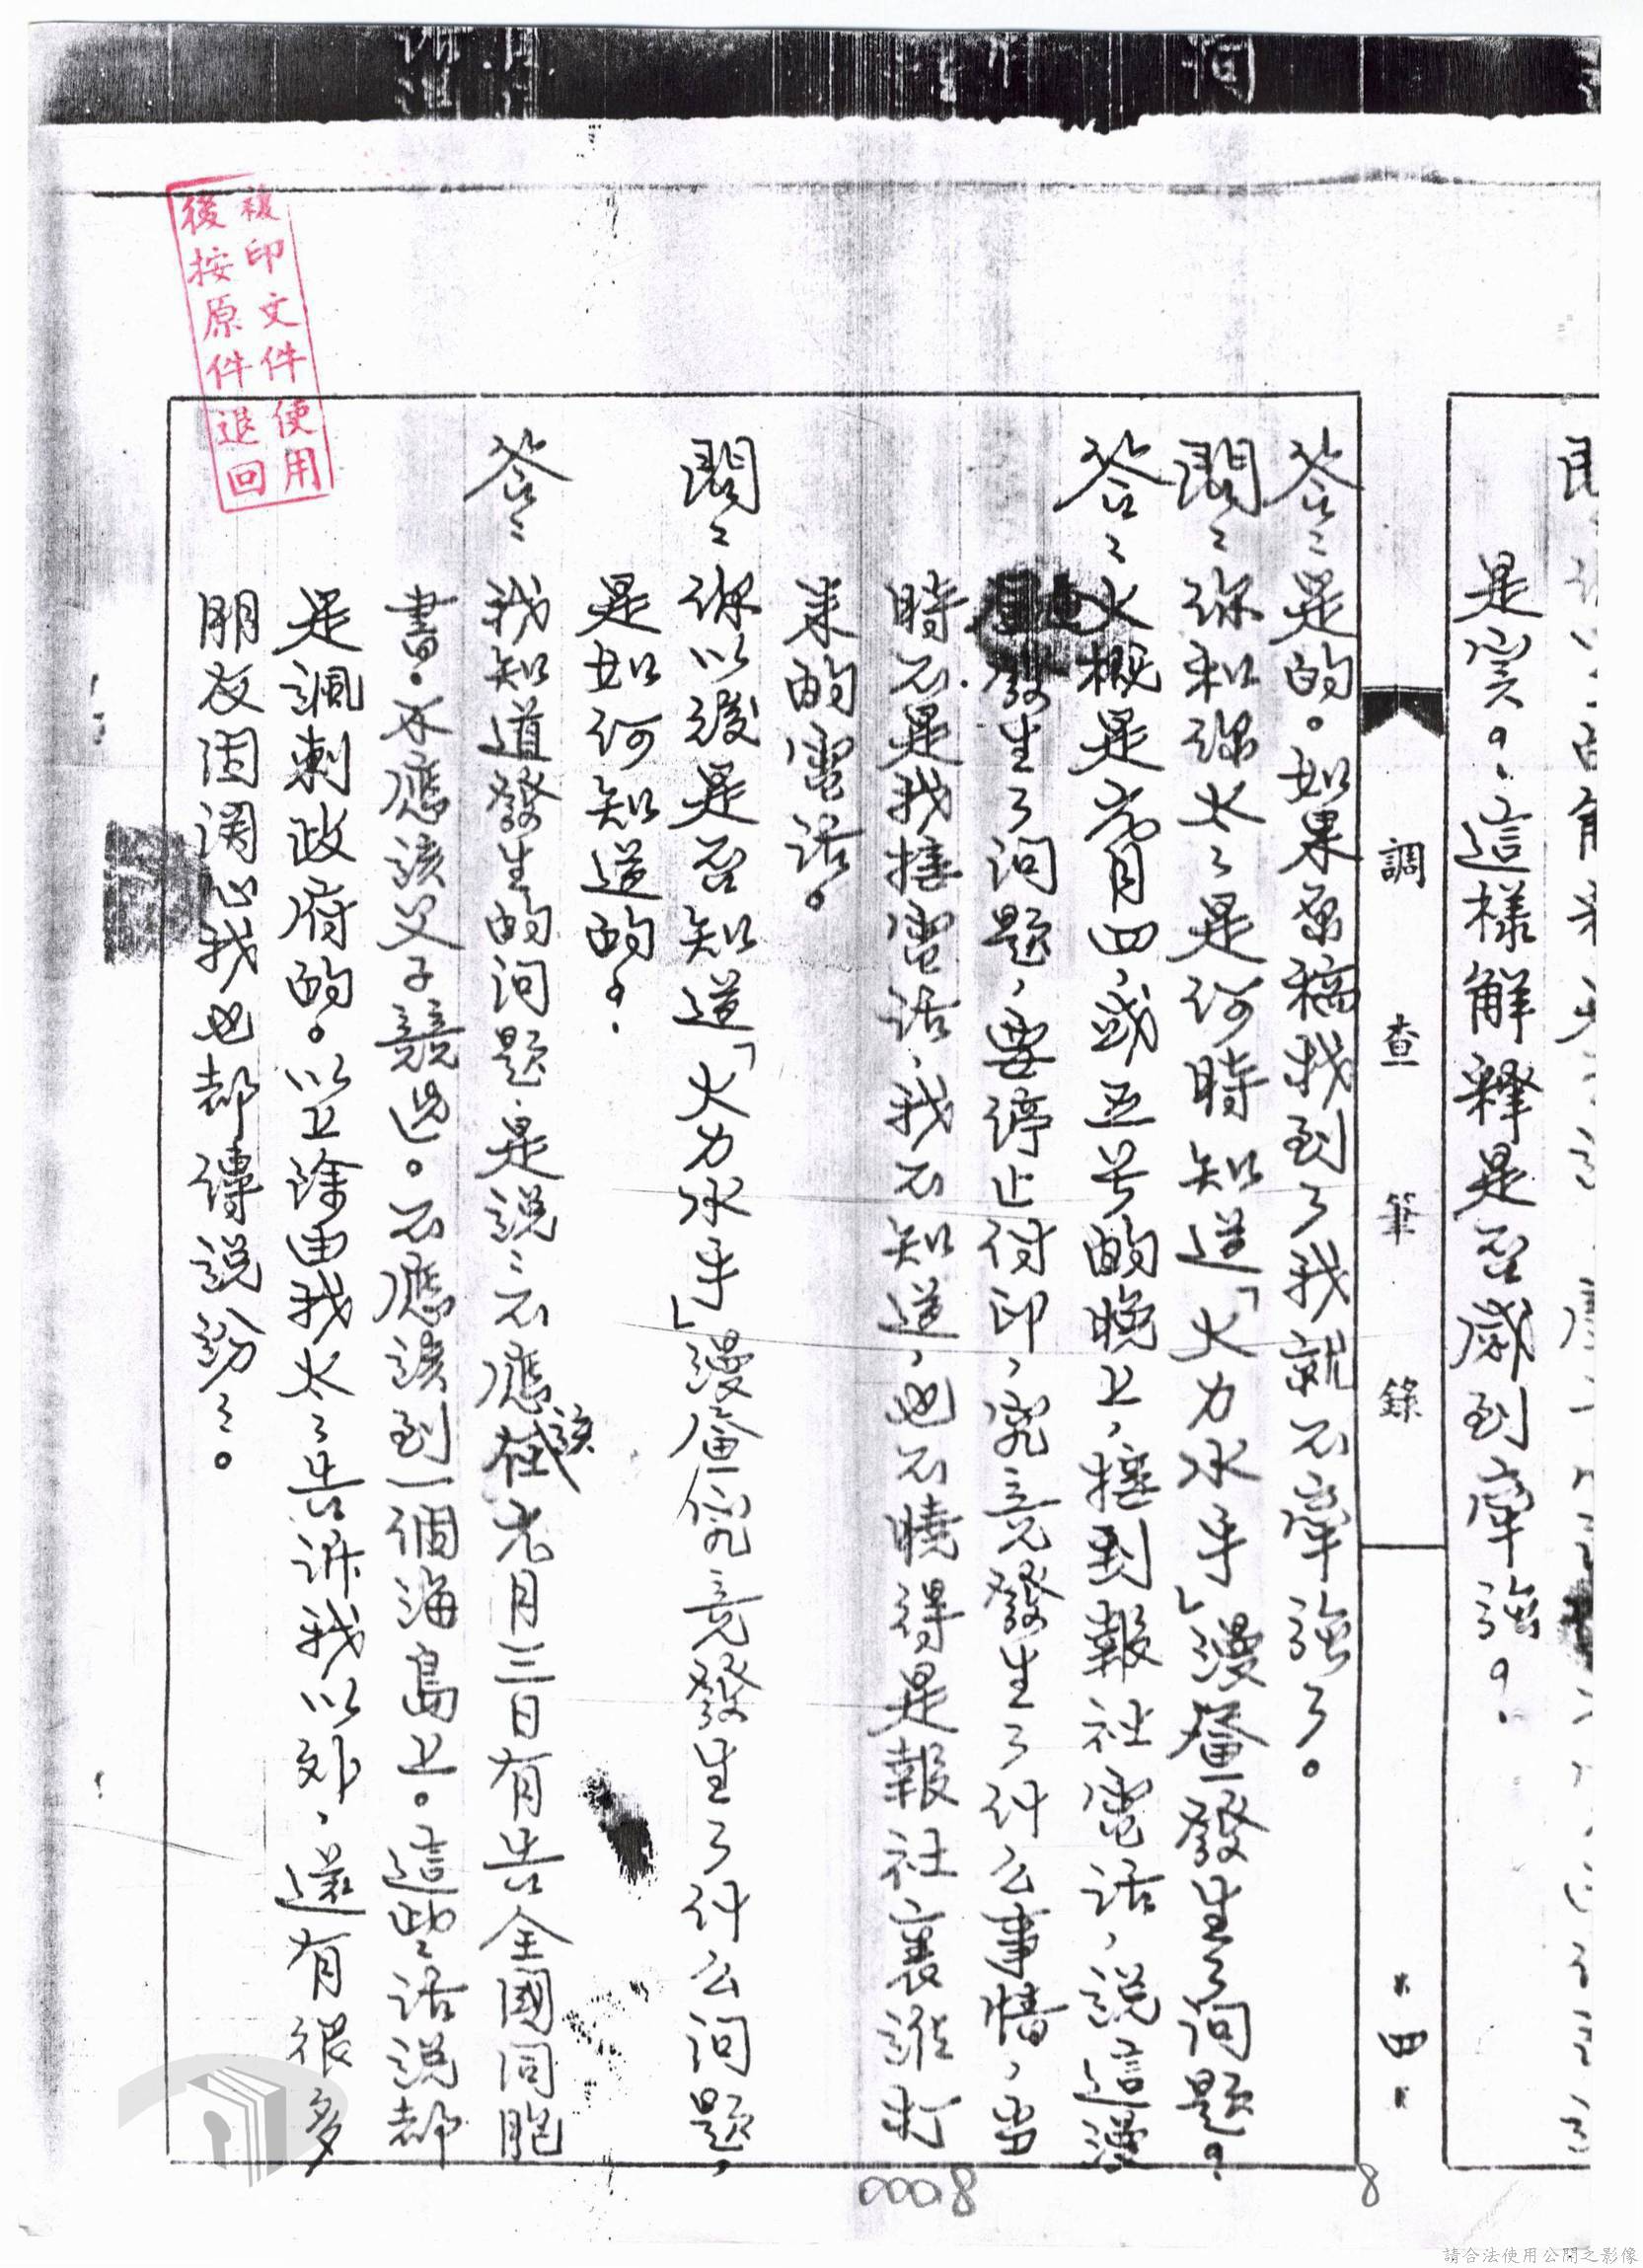 是實？這樣解释是否感到牽強？
調查筆錄
四
答：是的。如果原稿找到了我就不牽強了。
問：你和你太：是何時知道「大力水手」漫畫發生了问题？
答：大概是六月四、或五号的晚上，接到報社電話，說這漫
畫發生了问题，要停止付印，究竟發生了什么事情，当
時不是我接電話，我不知道，也不曉得是報社裏誰打
来的電話。
問：你以後是否知道「大力水手」漫畫究竟發生了什么问题，
是如何知道的？
答：我知道發生的问题，是說：不應該元月三日有告全國同胞
書。不應該父子競選。不應該到一個海島上。這些話說都
是諷刺政府的。以上除由我太：告訴我以外，還有很多
朋友因関心我也都傳說紛：。
複印文件使用
後按原件退回
00018
8
請合法使用公開之影像